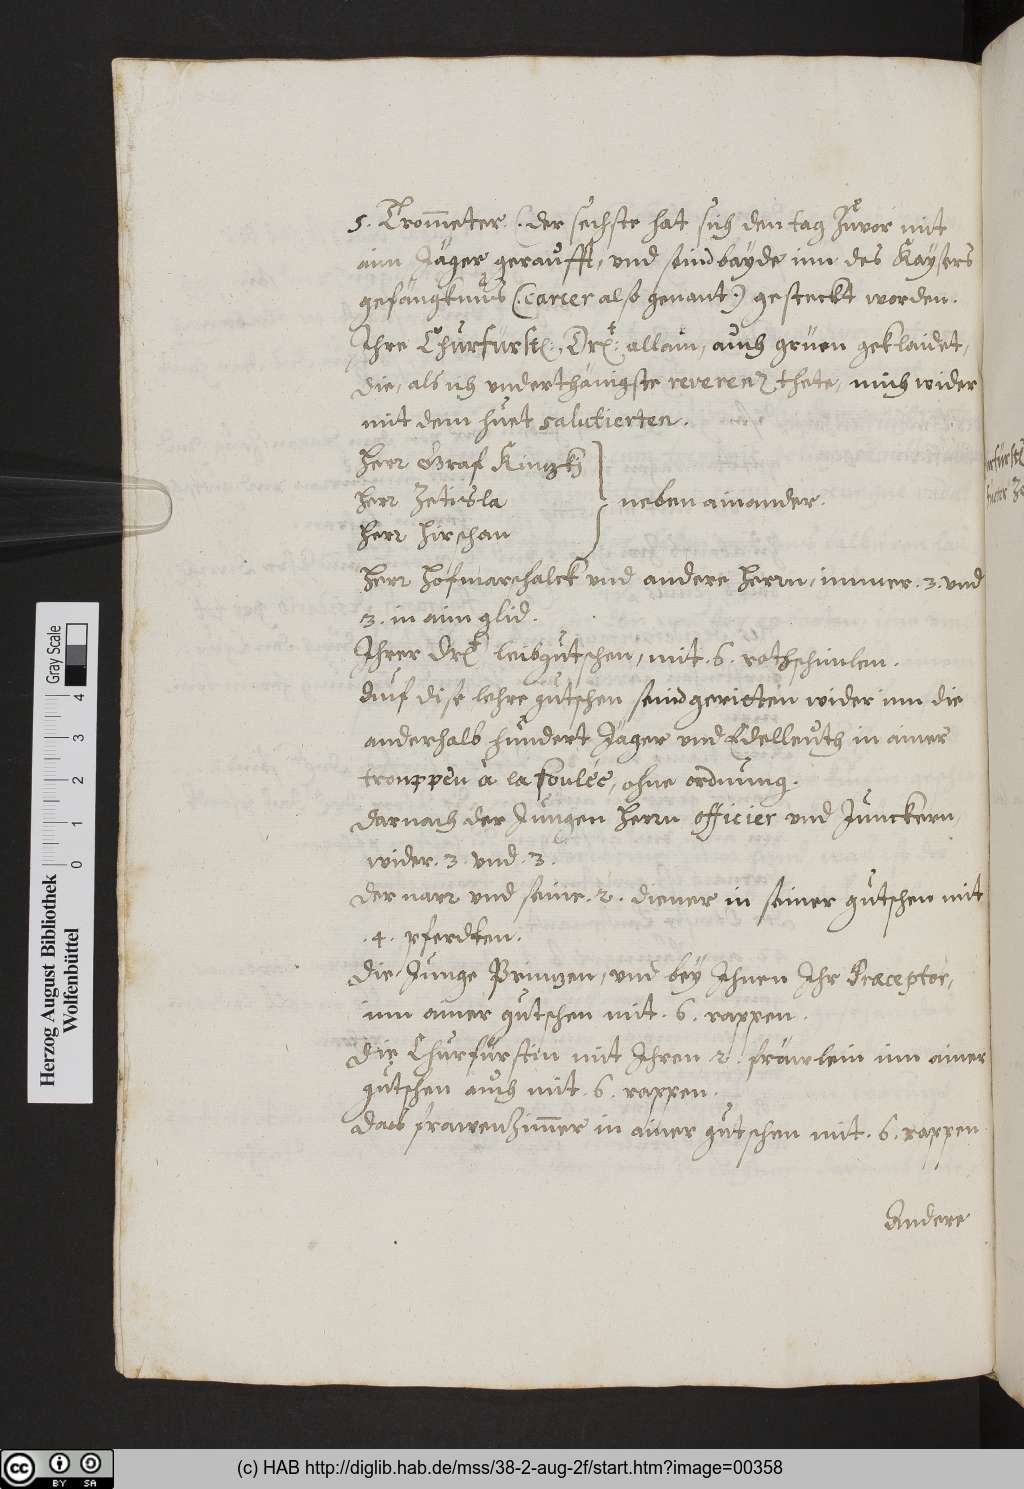 5. Trom̄eter (. der sechste hat sich den tag Zůvor mit
aim Jäger geraufft, und seind bayde inn des Kaysers
gefängknus (. Carcer also genant .) gesteckt worden.
Ihre Churfürstl: Drl: allain, auch grüen geklaidet,
die, als ich underthänigste reverenz thete, mich wider
mit dem huet salutierten.
Herr Graf Kinzki
Herr
Herr Hirschan
neben ainander.
Herr Hofmarschalck und andere Herrn, immer . 3. und
3. in aim glid.
Ihrer Drl leibgutschen, mit . 6. rothschimlen.
Auf dise lehre gutschen seind geritten wider inn die
anderhalb hundert Jäger und Edelleuth in ainer
trouppen à la foulée, ohne ordnung.
Darnach der Jungen Herrn officier und Junckern,
wider . 3. und . 3.
Der narr und seine . 2. diener in seiner gutschen mit
. 4. pferdten.
Die Junge Prinzen, und bey Ihnen Ihr Præceptor,
inn ainer gutschen mit . 6. rappen.
Die Churfürstin mit Ihren 2. fräwlein inn ainer
gutschen auch mit . 6. rappen.
Das frawenzim̄er in ainer gutschen mit . 6. rappen
Andere
Herzog August Bibliothek
Wolfenbüttel
Gray Scale
0 1 2 3 4
cc BY SA
(c) HAB http://diglib.hab.de/mss/38-2-aug-2f/start.htm?image=00358